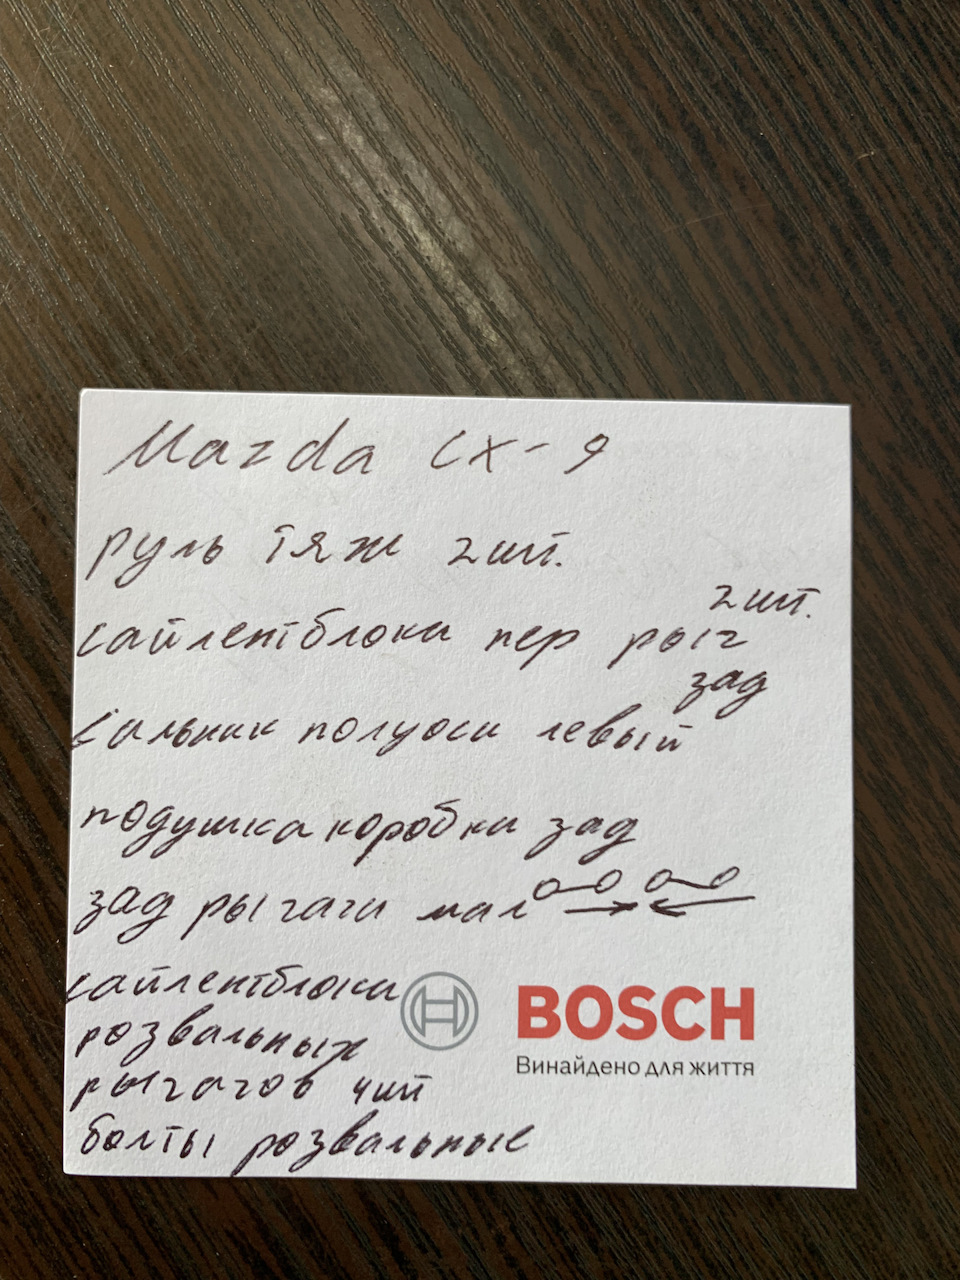 Mazda CX-9
руль тяж 2 шт.
сайлентблоки пер рыг 2 шт.
зад
сальник полуоси левый
подушка коробки зад
зад рычаги мал
сайлентблоки
розвальных
рычагов 4шт
болты розвальные
BOSCH
Винайдено для життя